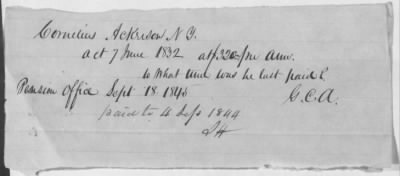 Cornelius Ackerson N.Y.
act 7 June 1832 at $ 320 pr Ann.
to What time was he last paid?
Pension Office Sept 18. 1845 G.C.A.
paid to 4 Sep 1844